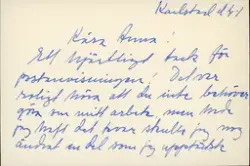 Karlstad d. 4/1
Kära Anna!
Ett hjärtligt tack för
postanvisningen! Det var
roligt höra att du inte behöver
göra om mitt arbete, men hade
jag haft det kvar skulle jag nog
ändrat en del som jag upptäckte